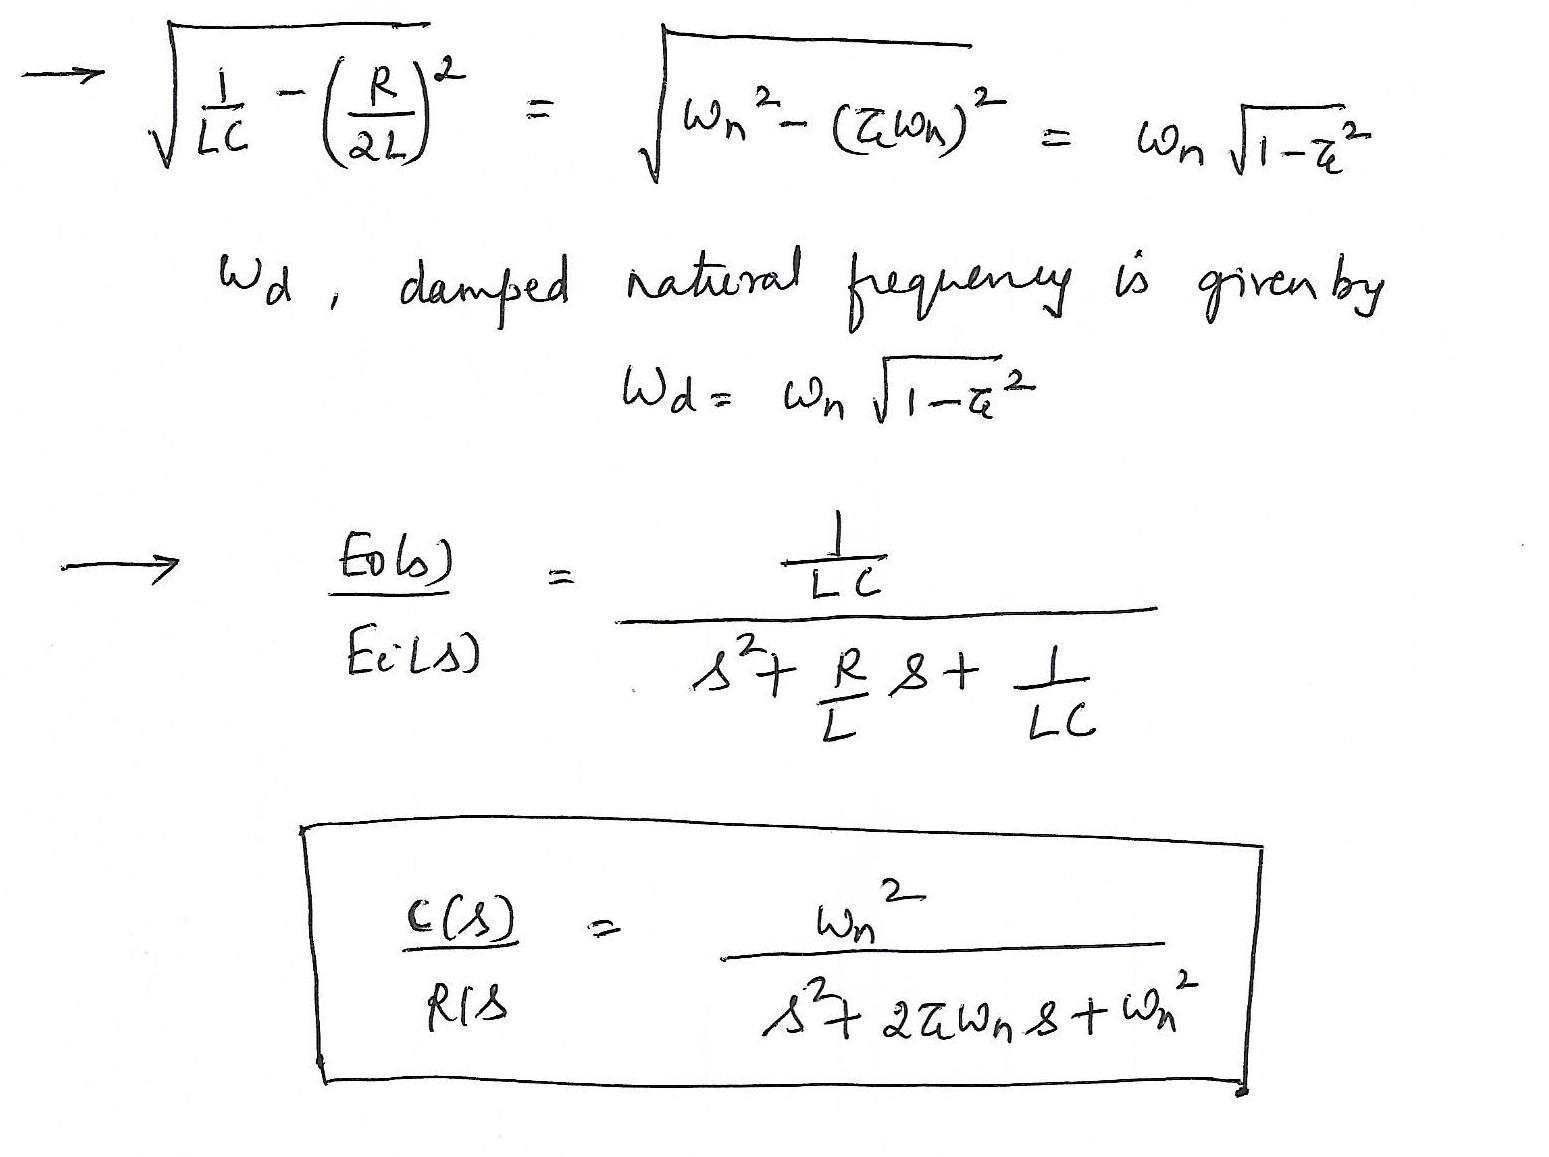 → √(1/LC - (R/2L)²) = √(ωn² - (ξωn)²) = ωn √(1-ξ²)
ωd, damped natural frequency is given by
ωd = ωn √(1-ξ²)
→ Eo(s)/Ei(s) = (1/LC)/(s² + R/L s + 1/LC)
C(s)/R(s = ωn²/(s² + 2ξωn s + ωn²)